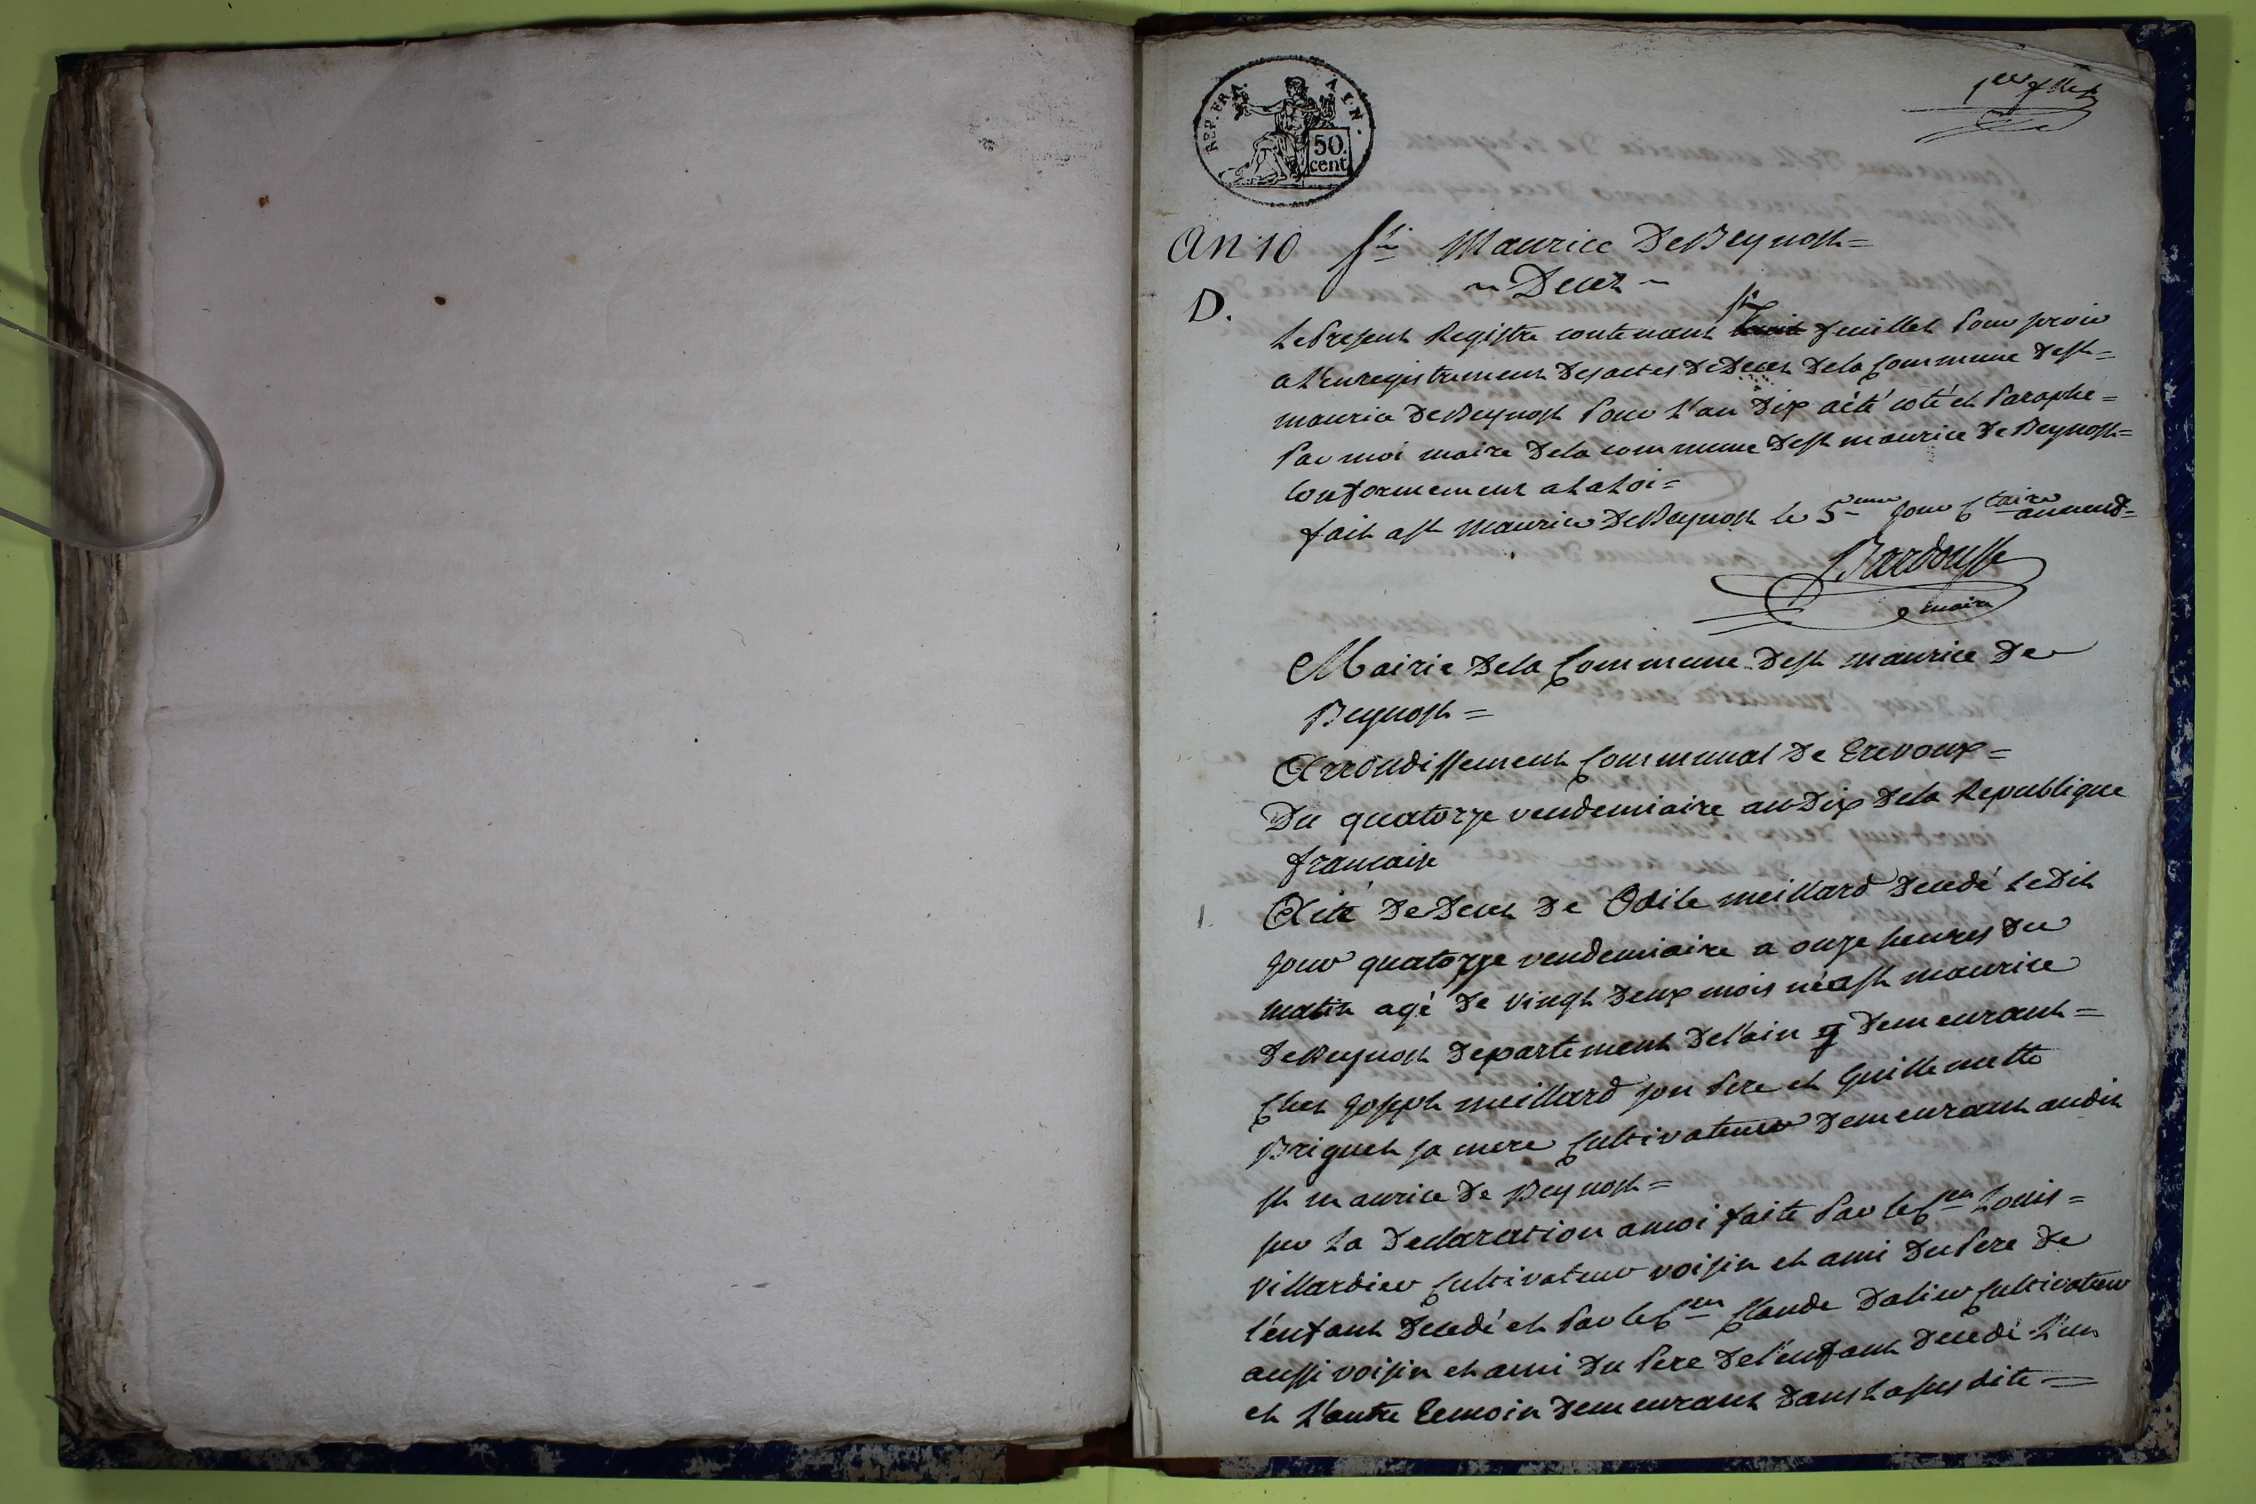 REP. FRA. AIN.
50 cent
1er fllet
An 10 St Maurice De Beynost =
~ Decez ~
D.
six
Le Present Registre contenant huit feuillet Pour servir
a l'enregistrement Des actes De Decez De la Commune De St =
maurice De Beynost Pour L'an Dix a été coté et Paraphé =
Par moi maire De la commune De St maurice De Beynost =
Conformement a La Loi =
fait a St Maurice De Beynost le 5eme Jour Ctaire an neuf =
Bardousse
maire
Mairie De la Commune De St maurice De
Beynost =
Arrondissement Communal De Trevoux =
Du quatorze vendemiaire an Dix De la Republique
francaise
1. Acte De Decez De Odile meillard Decedé Le Dit
Jour quatorze vendemiaire a onze heures Du
matin agé De vingt Deux mois né a St maurice
De Beynost Departement De l'ain Demeurant =
Chez Joseph meillard son Pere et Guillemette
Briguet sa mere Cultivateurs Demeurant audit
St maurice De Beynost =
sur La Declaration a moi faite Par le Cen Louis =
villardier Cultivateur voisin et ami Du Pere De
l'enfant Decedé et Par le Cen Claude Dalier Cultivateur
aussi voisin et ami Du Pere De l'enfant Decedé L'un
et L'autre Temoin Demeurant Dans La susdite =